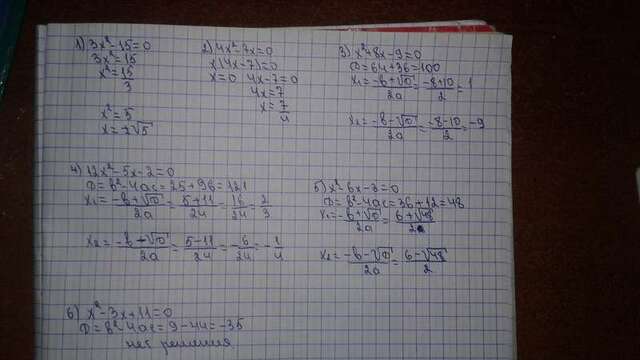 1) 3x²-15=0
3x²=15
x²=15/3
x²=5
x=±√5
2) 4x²-7x=0
x(4x-7)=0
x=0 4x-7=0
4x=7
x=7/4
3) x²+8x-9=0
D=64+36=100
x₁=-b+√D/2a=-8+10/2=1
x₂=-b-√D/2a=-8-10/2=-9
4) 12x²-5x-2=0
D=b²-4ac=25+96=121
x₁=-b+√D/2a=5+11/24=16/24=2/3
x₂=-b+√D/2a=5-11/24=-6/24=-1/4
5) x²-6x-3=0
D=b²-4ac=36+12=48
x₁=-b+√D/2a=6+√48/2
x₂=-b-√D/2a=6-√48/2
6) x²-3x+11=0
D=b²-4ac=9-44=-35
нет решения